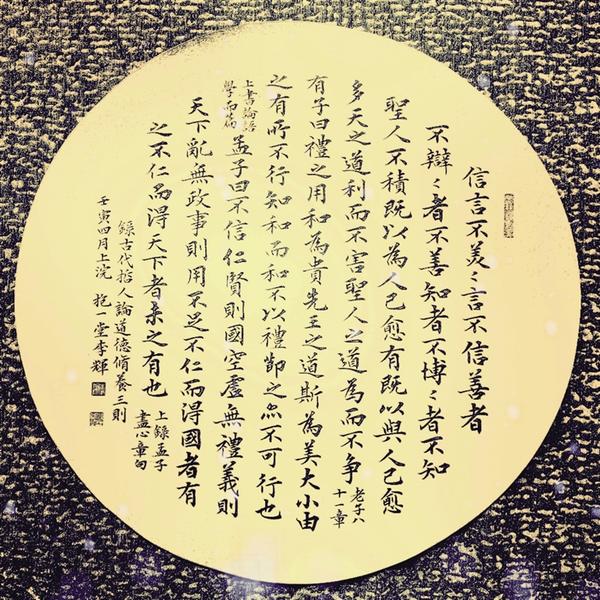 信言不美〻言不信善者
不辯〻者不善知者不博〻者不知
聖人不積既以為人已愈有既以與人已愈
多天之道利而不害聖人之道為而不争 老子八十一章
有子曰禮之用和為貴先王之道斯為美大小由
之有所不行知和而和不以禮節之亦不可行也
上書論語學而篇 孟子曰不信仁賢則國空虛無禮義則
天下亂無政事則用不足不仁而得國者有
之不仁而得天下者未之有也 上錄孟子盡心章句
錄古代哲人論道德脩養三則
壬寅四月上浣 抱一堂李輝